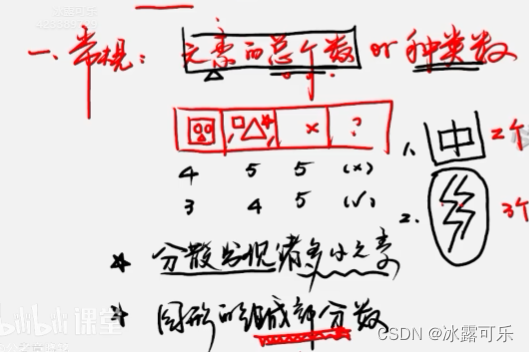 冰露可乐
一、常规： 元素的总个数 or 种类数
× ?
4 5 5 (×)
3 4 5 (√)
1. 中 2个
2. 3个
* 分散出现诸多小元素
* 图形的组成部分数
bilibili 课堂
CSDN @冰露可乐